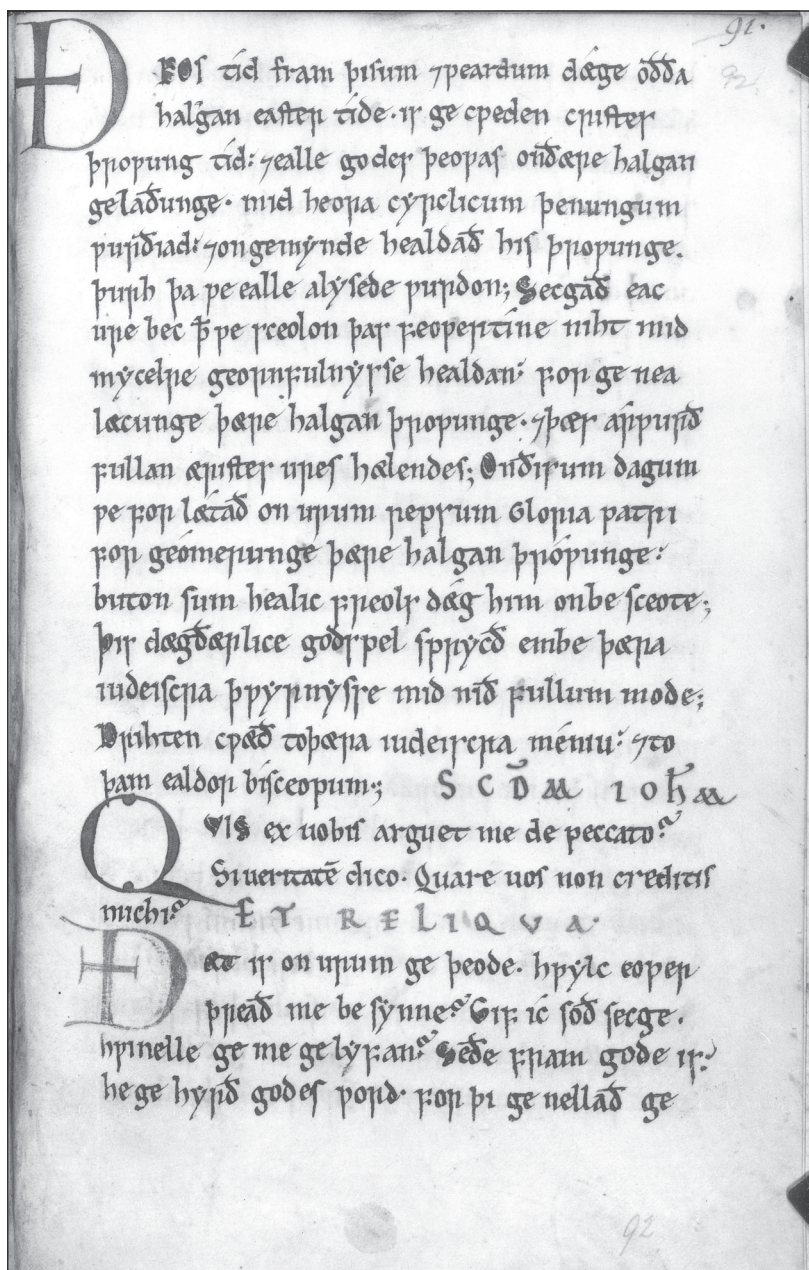 91.
92
ÐEOS tíd fram þisum ⁊ƿeardum dæge oððа
halgan easter tide· is ge cƿeden cristes
þroƿung tíd: ⁊ealle godes þeoƿas onðære halgan
gelaðunge· mid heora cyrclicum þenungum
ƿurðiað: ⁊ongemynde healdað his þroƿunge.
þurh þa ƿe ealle alysede ƿurdon; Secgað eac
ure bec ꝥ ƿe sceolon þas feoƿertine niht mid
mycelre geornfulnysse healdan: for ge nea
læcunge þære halgan þroƿunge· ⁊þæs arƿurð
fullan æristes ures hælendes; Onðisum dagum
ƿe for lætað on urum repsum Gloria patri
for geómerunge þære halgan þróƿunge:
buton sum healic freols dæg him onbe sceote;
Þis dægðærlice godspel sprycð embe þæra
iudeiscra þƿyrnysse mid nið fullum mode;
Drihten cƿæð toþæra iudeiscra meniu: ⁊to
þam ealdor bisceopum; SCD̄M IOH̄M
QVIS ex uobis arguet me de peccato?
Si ueritatē dico· Quare uos non creditis
michi? ET RELIQVA·
Ðæt is on urum ge þeode· hƿylc eoƿer
þreað me be synne? Gif ic soð secge·
hƿi nelle ge me gelyfan? Seðe fram gode is:
he ge hyrð godes ƿord· for þi ge nellað ge
92